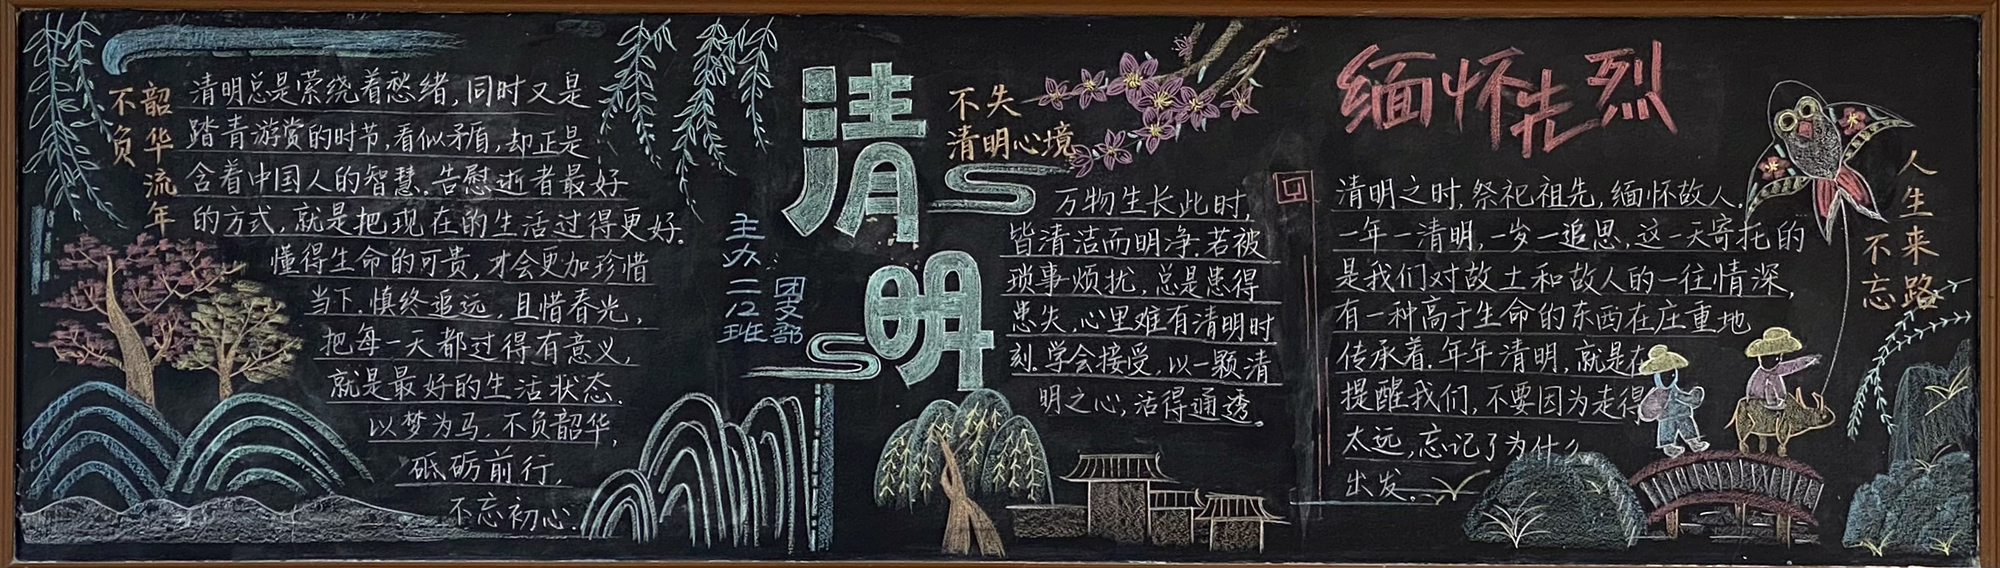 不负
韶华流年
清明总是萦绕着愁绪,同时又是
踏青游赏的时节,看似矛盾,却正是
含着中国人的智慧.告慰逝者最好
的方式,就是把现在的生活过得更好.
懂得生命的可贵,才会更加珍惜
当下.慎终追远,且惜春光,
把每一天都过得有意义,
就是最好的生活状态.
以梦为马.不负韶华,
砥砺前行,
不忘初心.
主办二12班
团支部
清
明
不失
清明心境
万物生长此时,
皆清洁而明净.若被
琐事烦扰,总是患得
患失,心里难有清明时
刻.学会接受,以一颗清
明之心,活得通透。
缅怀先烈
清明之时,祭祀祖先,缅怀故人,
一年一清明,一岁一追思,这一天寄托的
是我们对故土和故人的一往情深,
有一种高于生命的东西在庄重地
传承着.年年清明,就是在
提醒我们,不要因为走得
太远,忘记了为什么
出发。
人生来路
不忘